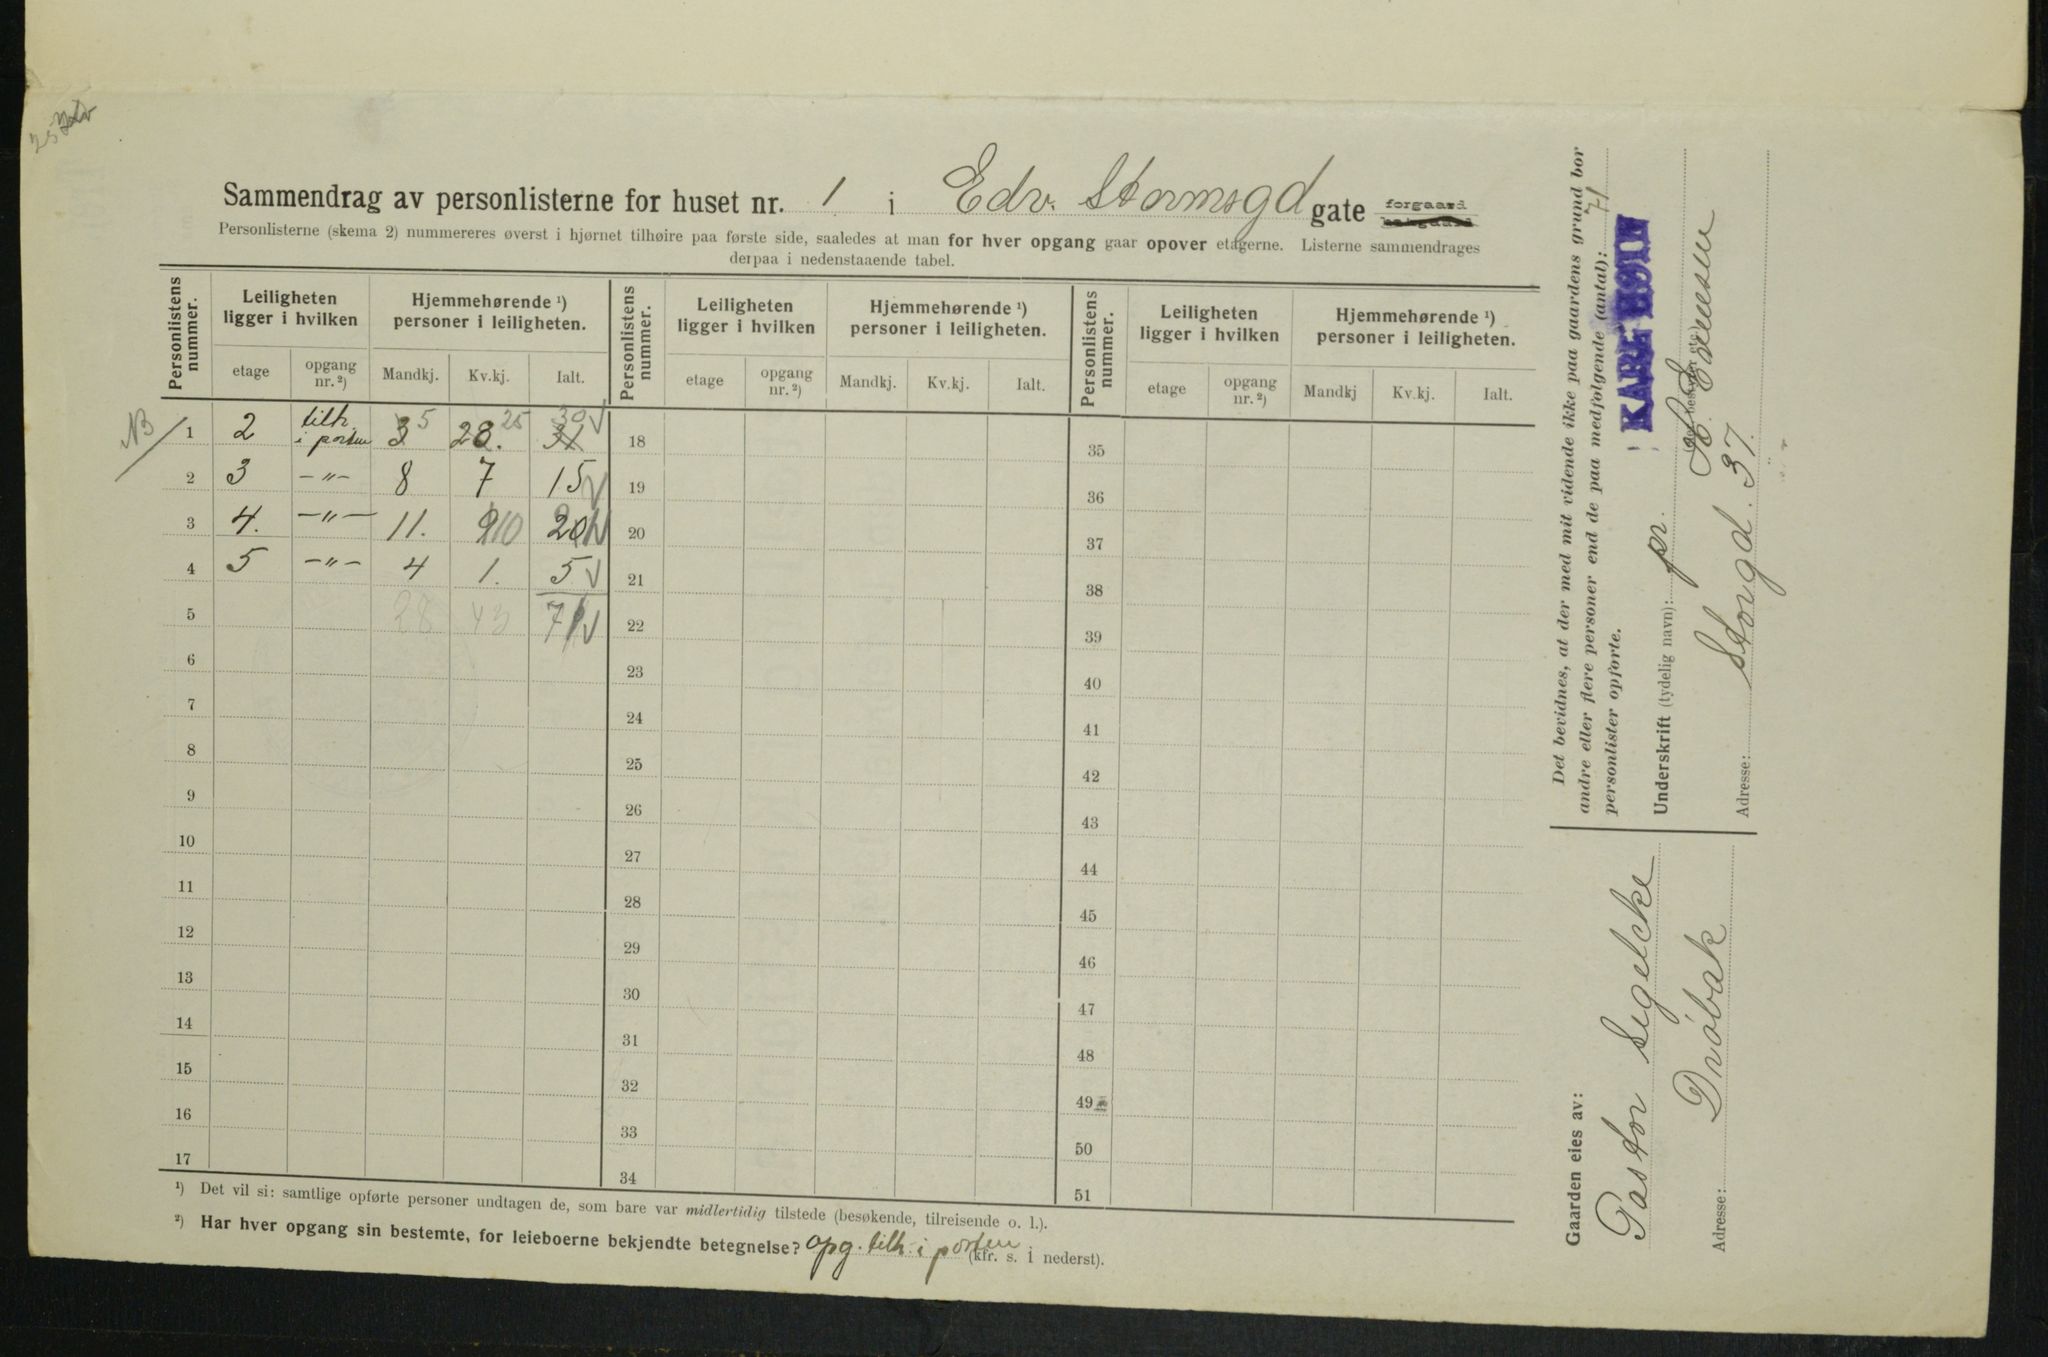 Sammendrag av personlisterne for huset nr. 1 i Edv. Stormsgd gate forgaard bakgaard
Personlisterne (skema 2) nummereres øverst i hjørnet tilhøire paa første side, saaledes at man for hver opgang gaar opover etagerne. Listerne sammendrages
derpaa i nedenstaaende tabel.
Personlistens nummer. Leiligheten ligger i hvilken Hjemmehørende ¹) personer i leiligheten. Personlistens nummer. Leiligheten ligger i hvilken Hjemmehørende ¹) personer i leiligheten. Personlistens nummer. Leiligheten ligger i hvilken Hjemmehørende ¹) personer i leiligheten.
etage opgang nr. ²) Mandkj. Kv.kj. Ialt. etage opgang nr. ²) Mandkj. Kv.kj. Ialt. etage opgang nr. ²) Mandkj Kv.kj. Ialt.
NB 1 2 tilh. i porten 3 5 28. 25 31 30 18 35
2 3 -"- 8 7 15 19 36
3 4. -"- 11. 9 10 20 20 37
4 5 -"- 4 1. 5 21 38
5 28 43 71 22 39
6 23 40
7 24 41
8 25 42
9 26 43
10 27 44
11 28 45
12 29 46
13 30 47
14 31 48
15 32 49
16 33 50
17 34 51
¹) Det vil si: samtlige opførte personer undtagen de, som bare var midlertidig tilstede (besøkende, tilreisende o. l.).
²) Har hver opgang sin bestemte, for leieboerne bekjendte betegnelse? opg. tilh. i porten (kfr. s. 1 nederst).
Det bevidnes, at der med mit vidende ikke paa gaardens grund bor
andre eller flere personer end de paa medfolgende (antal): 71
personlister opførte.
Underskrift (tydelig navn): pr.
Adresse: Storgd. 37.
Gaarden eies av:
Pastor Segelcke
Adresse: Drøbak